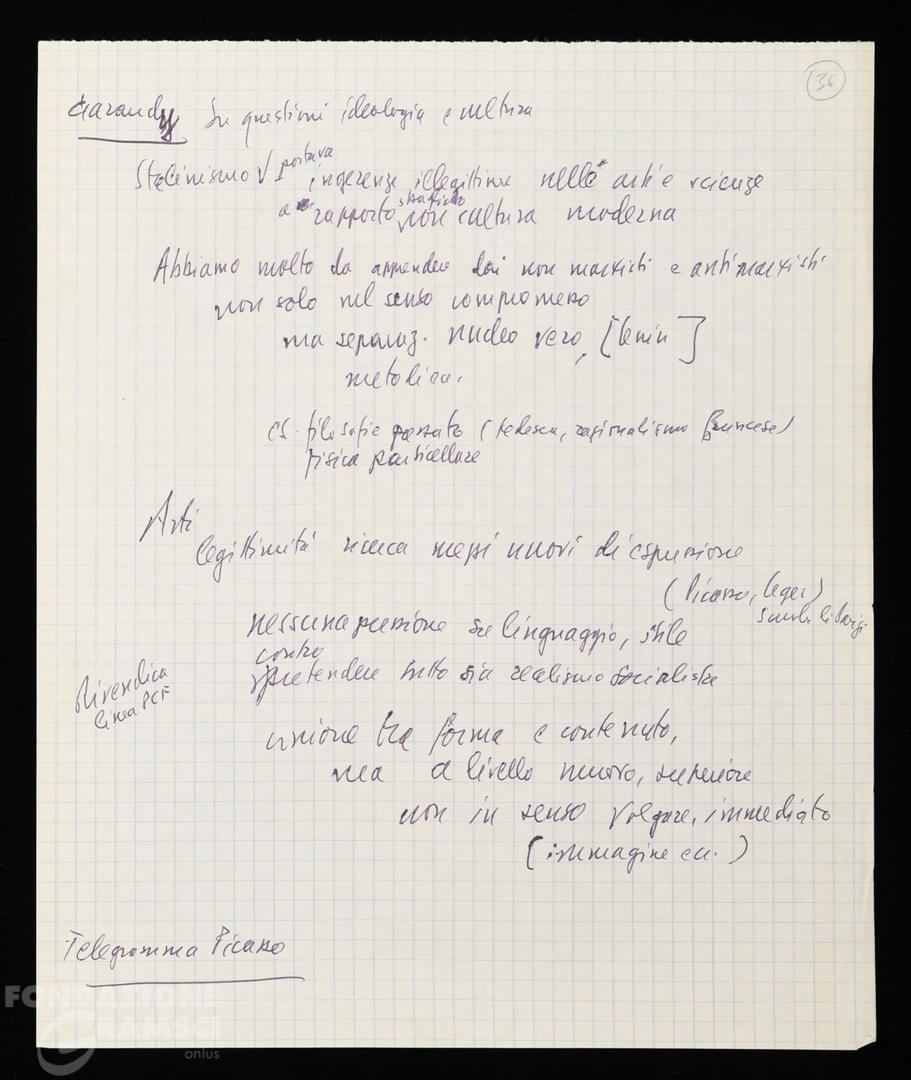 36
Garaudy Su questioni ideologia e cultura
Stalinismo √ portava
ingerenze illegittime nelle arti e scienze
a rapporto non cultura moderna
Abbiamo molto da apprendere dai non marxisti e antimarxisti
non solo nel senso compromesso
ma separaz. nucleo vero, [Lenin]
metodica.
es. filosofie passato (tedesca, razionalismo francese)
fisica particellare
Arti
legittimità ricerca mezzi nuovi di espressione
(Picasso, Leger)
Scuola di Parigi
nessuna pressione su linguaggio, stile
contro
pretendere tutto sia realismo socialista
Rivendica
linea PCF
unione tra forma e contenuto,
ma a livello nuovo, superiore
non in senso volgare, immediato
(immagine ecc.)
Telegramma Picasso
FONDAZIONE
GRAMSCI
onlus